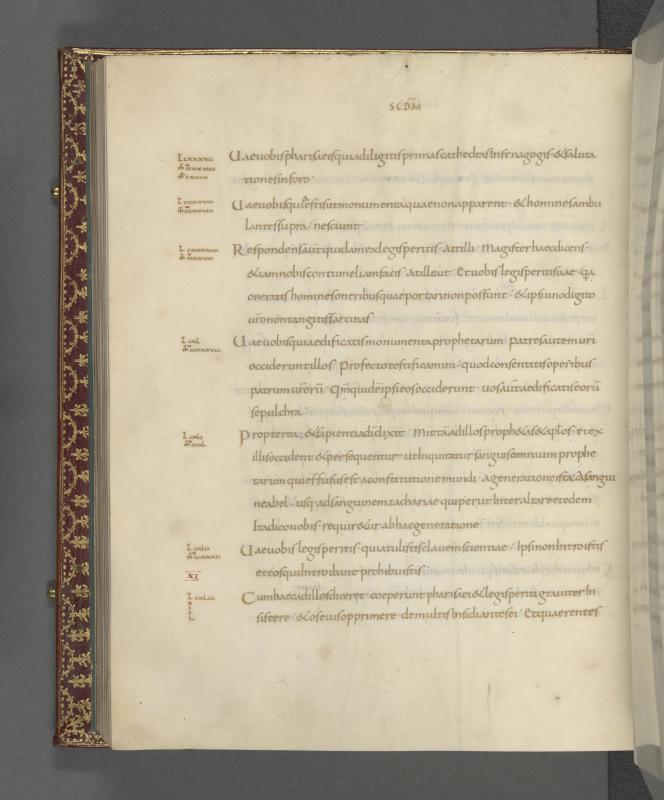 SCDM̄
Uae uobis pharisaeis quia diligitis primas cathedras in synagogis · & saluta
tiones in foro ·
Uae uobis qui estis ut monumenta quae non apparent · & homines ambu
lantes supra · nesciunt ·
Respondens aut̄ quidam ex legis peritis · ait illi · Magister haec dicens ·
& iam nobis contumeliam facis · At ille ait · Et uobis legis peritis uae · q̄a
oneratis homines oneribus quae portari non possunt · & ipsi uno digito
ur̄o non tangitis sarcinas ·
Uae uobis quia edificatis monumenta prophetarum · patres autem ur̄i
occiderunt illos · Profecto testificamini · quod consentitis operibus
patrum ur̄orū · Qm̄ quidē ipsi eos occiderunt · uos aut̄ aedificatis eorū
sepulchra ·
Propterea · & sapientia dī dixit · Mittā ad illos proph&as & apl̄os · et ex
illis occident & persequentur · ut Inquiratur sanguis omnium prophe
tarum qui effusus est a constitutione mundi · a generatione ista · A sangui
ne abel · usq; ad sanguinem zachariae qui periit Inter altare et edem
Ita dico uobis · requir&ur ab hac generatione ·
Uae uobis legis peritis · quia tulistis clauem scientiae · Ipsi non Introistis
et eos qui Introibant prohibuistis ·
XI
Cum haec ad illos dicer& · coeperunt pharisaei & legis periti grauiter In
sistere · & os eius opprimere de multis Insidiantes ei · Et quaerentes